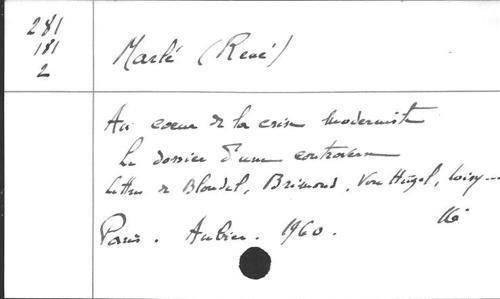 281
181
2
Marlé (René)
Au coeur de la crise moderniste
Le dossier d'une controverse
Lettres de Blondel, Bremond, Von Hügel, Loisy...
Paris. Aubier. 1960.